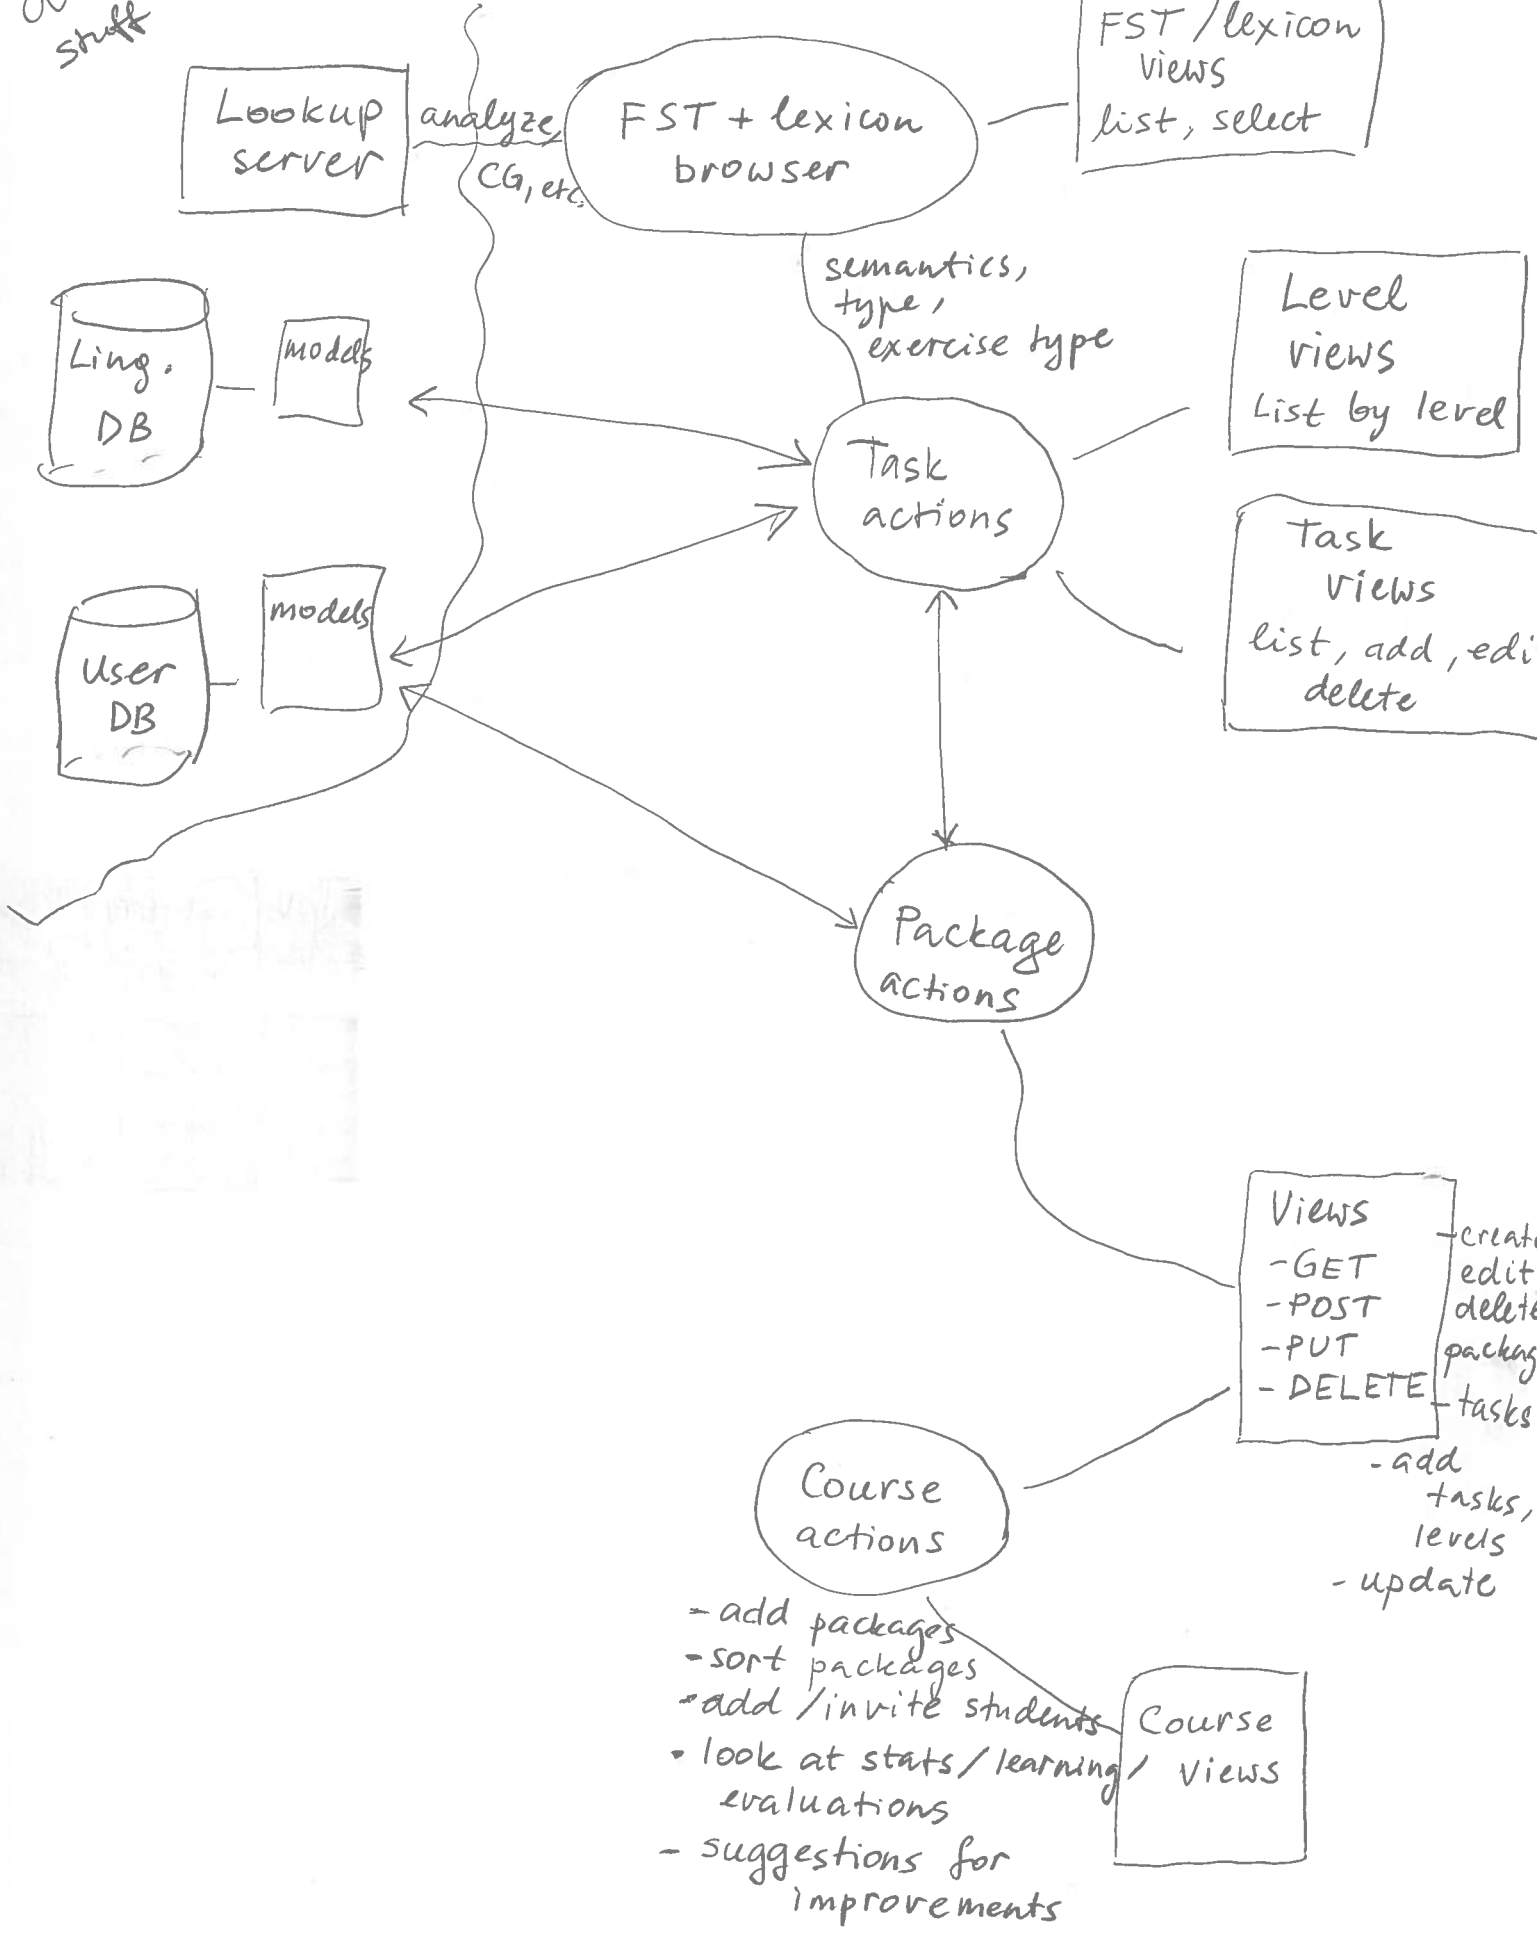 stuff
Lookup
server
analyze,
CG, etc.
FST + lexicon
browser
FST / lexicon
views
list, select
semantics,
type,
exercise type
Ling.
DB
models
Level
views
List by level
Task
actions
Task
views
list, add, edi
delete
User
DB
models
Package
actions
Views
- GET
- POST
- PUT
- DELETE
- creat
edit
delete
packag
- tasks
- add
tasks,
levels
- update
Course
actions
- add packages
- sort packages
- add / invite students
- look at stats / learning /
evaluations
- suggestions for
improvements
Course
views